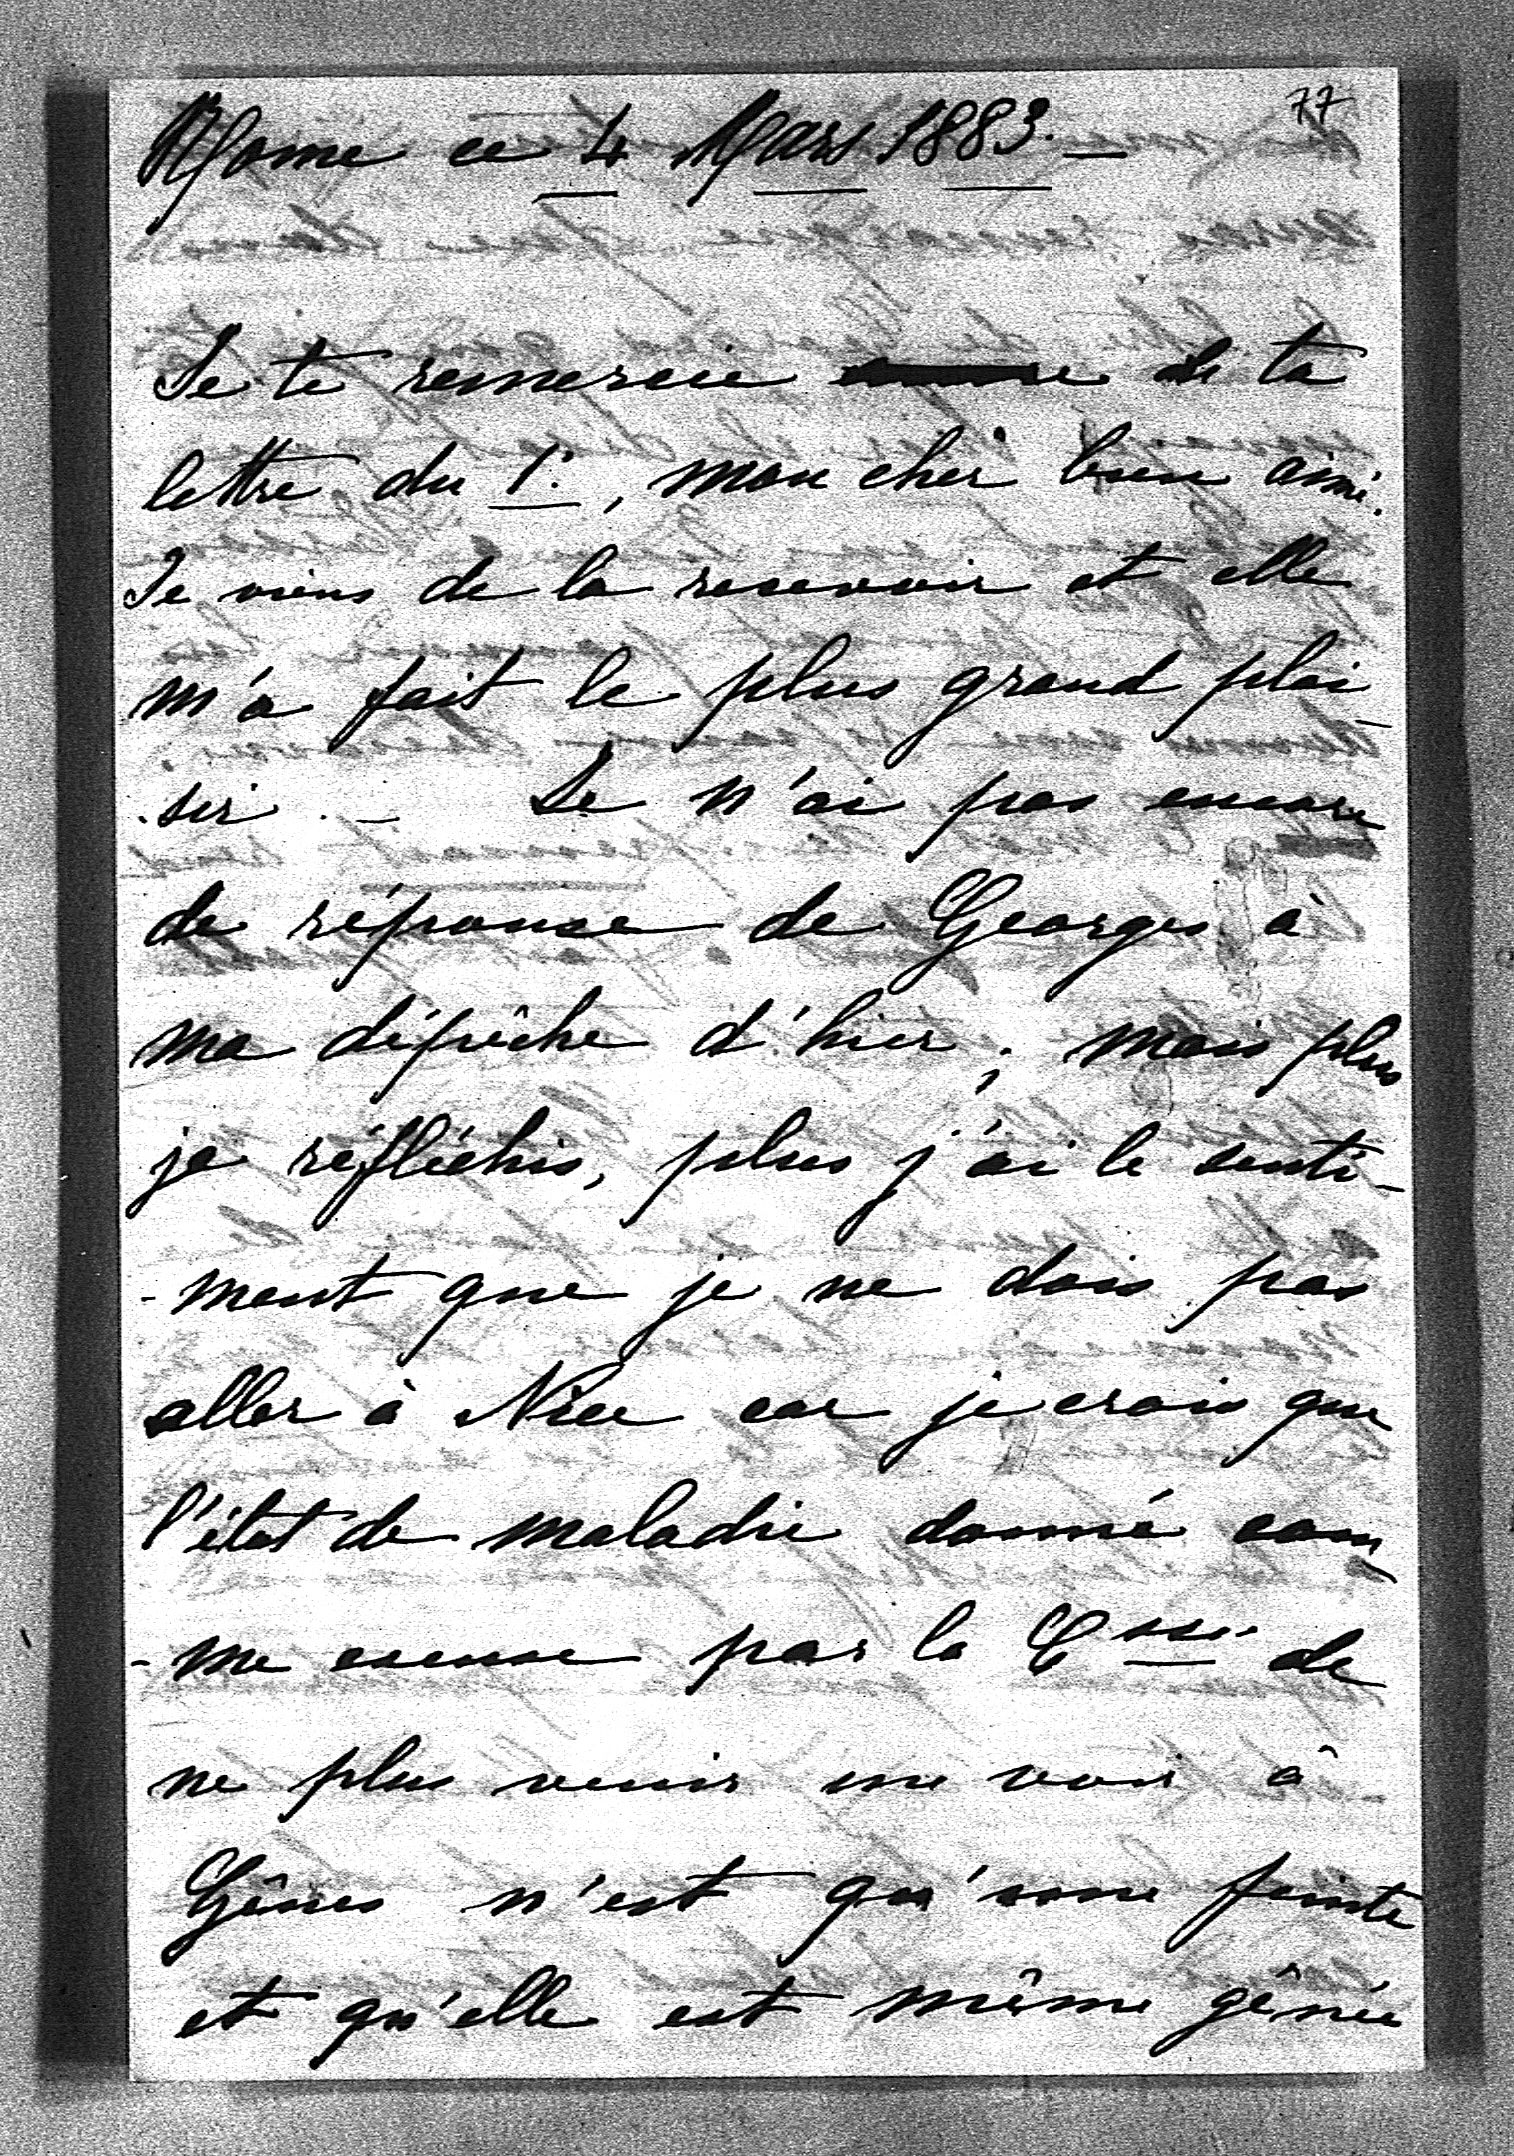 77
Rome ce 4 Mars 1883. —
Je te remercie de ta
lettre du 1., mon cher bien aimé.
Je viens de la recevoir et elle
m'a fait le plus grand plai-
-sir. — Je n'ai pas encore
de réponse de Georges à
ma dépêche d'hier; mais plus
je réfléchis, plus j'ai le senti-
-ment que je ne dois pas
aller à Nice car je crois que
l'état de maladie donné com-
-me excuse par la Csse. de
ne plus venir me voir à
Gênes n'est qu'une feinte
et qu'elle est même gênée